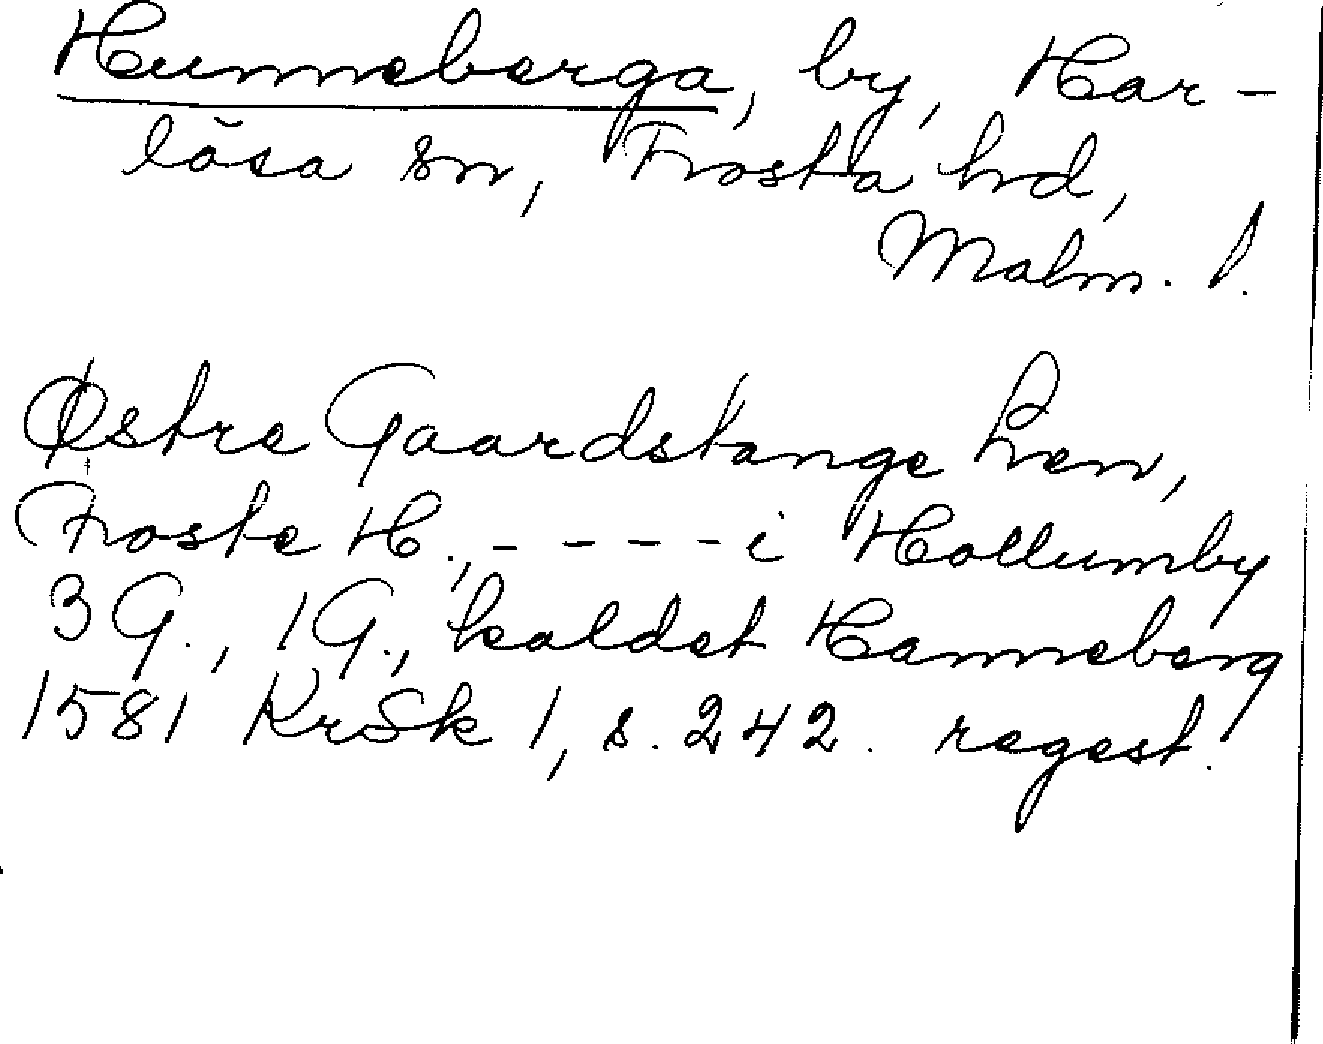 Hunneberga, by, Har-
lösa sn, Frosta hd,
Malm. l.
Østre Gaardstange Len,
Froste H., - - - - i Hollumby
3 G., 1 G., kaldet Hanneberg
1581 KrSk 1, s. 242. regest.